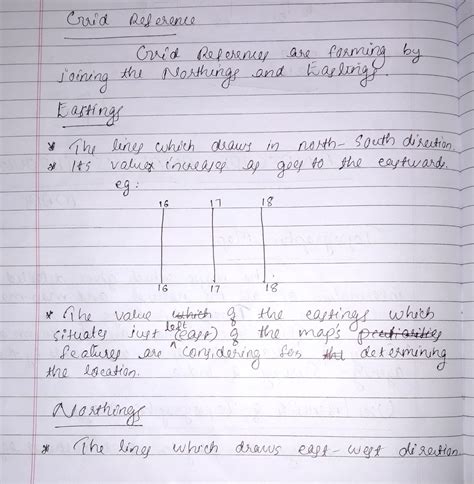 Grid Reference
Grid References are forming by
joining the Northings and Eastings.
Eastings
* The lines which draws in north-South direction.
* Its values increases as goes to the eastwards.
eg:
16 17 18
16 17 18
* The value which of the eastings which
situates just left (east) of the map's peculiarities
features are considering for the determining
the location.
Northings
* The lines which draws east-west direction